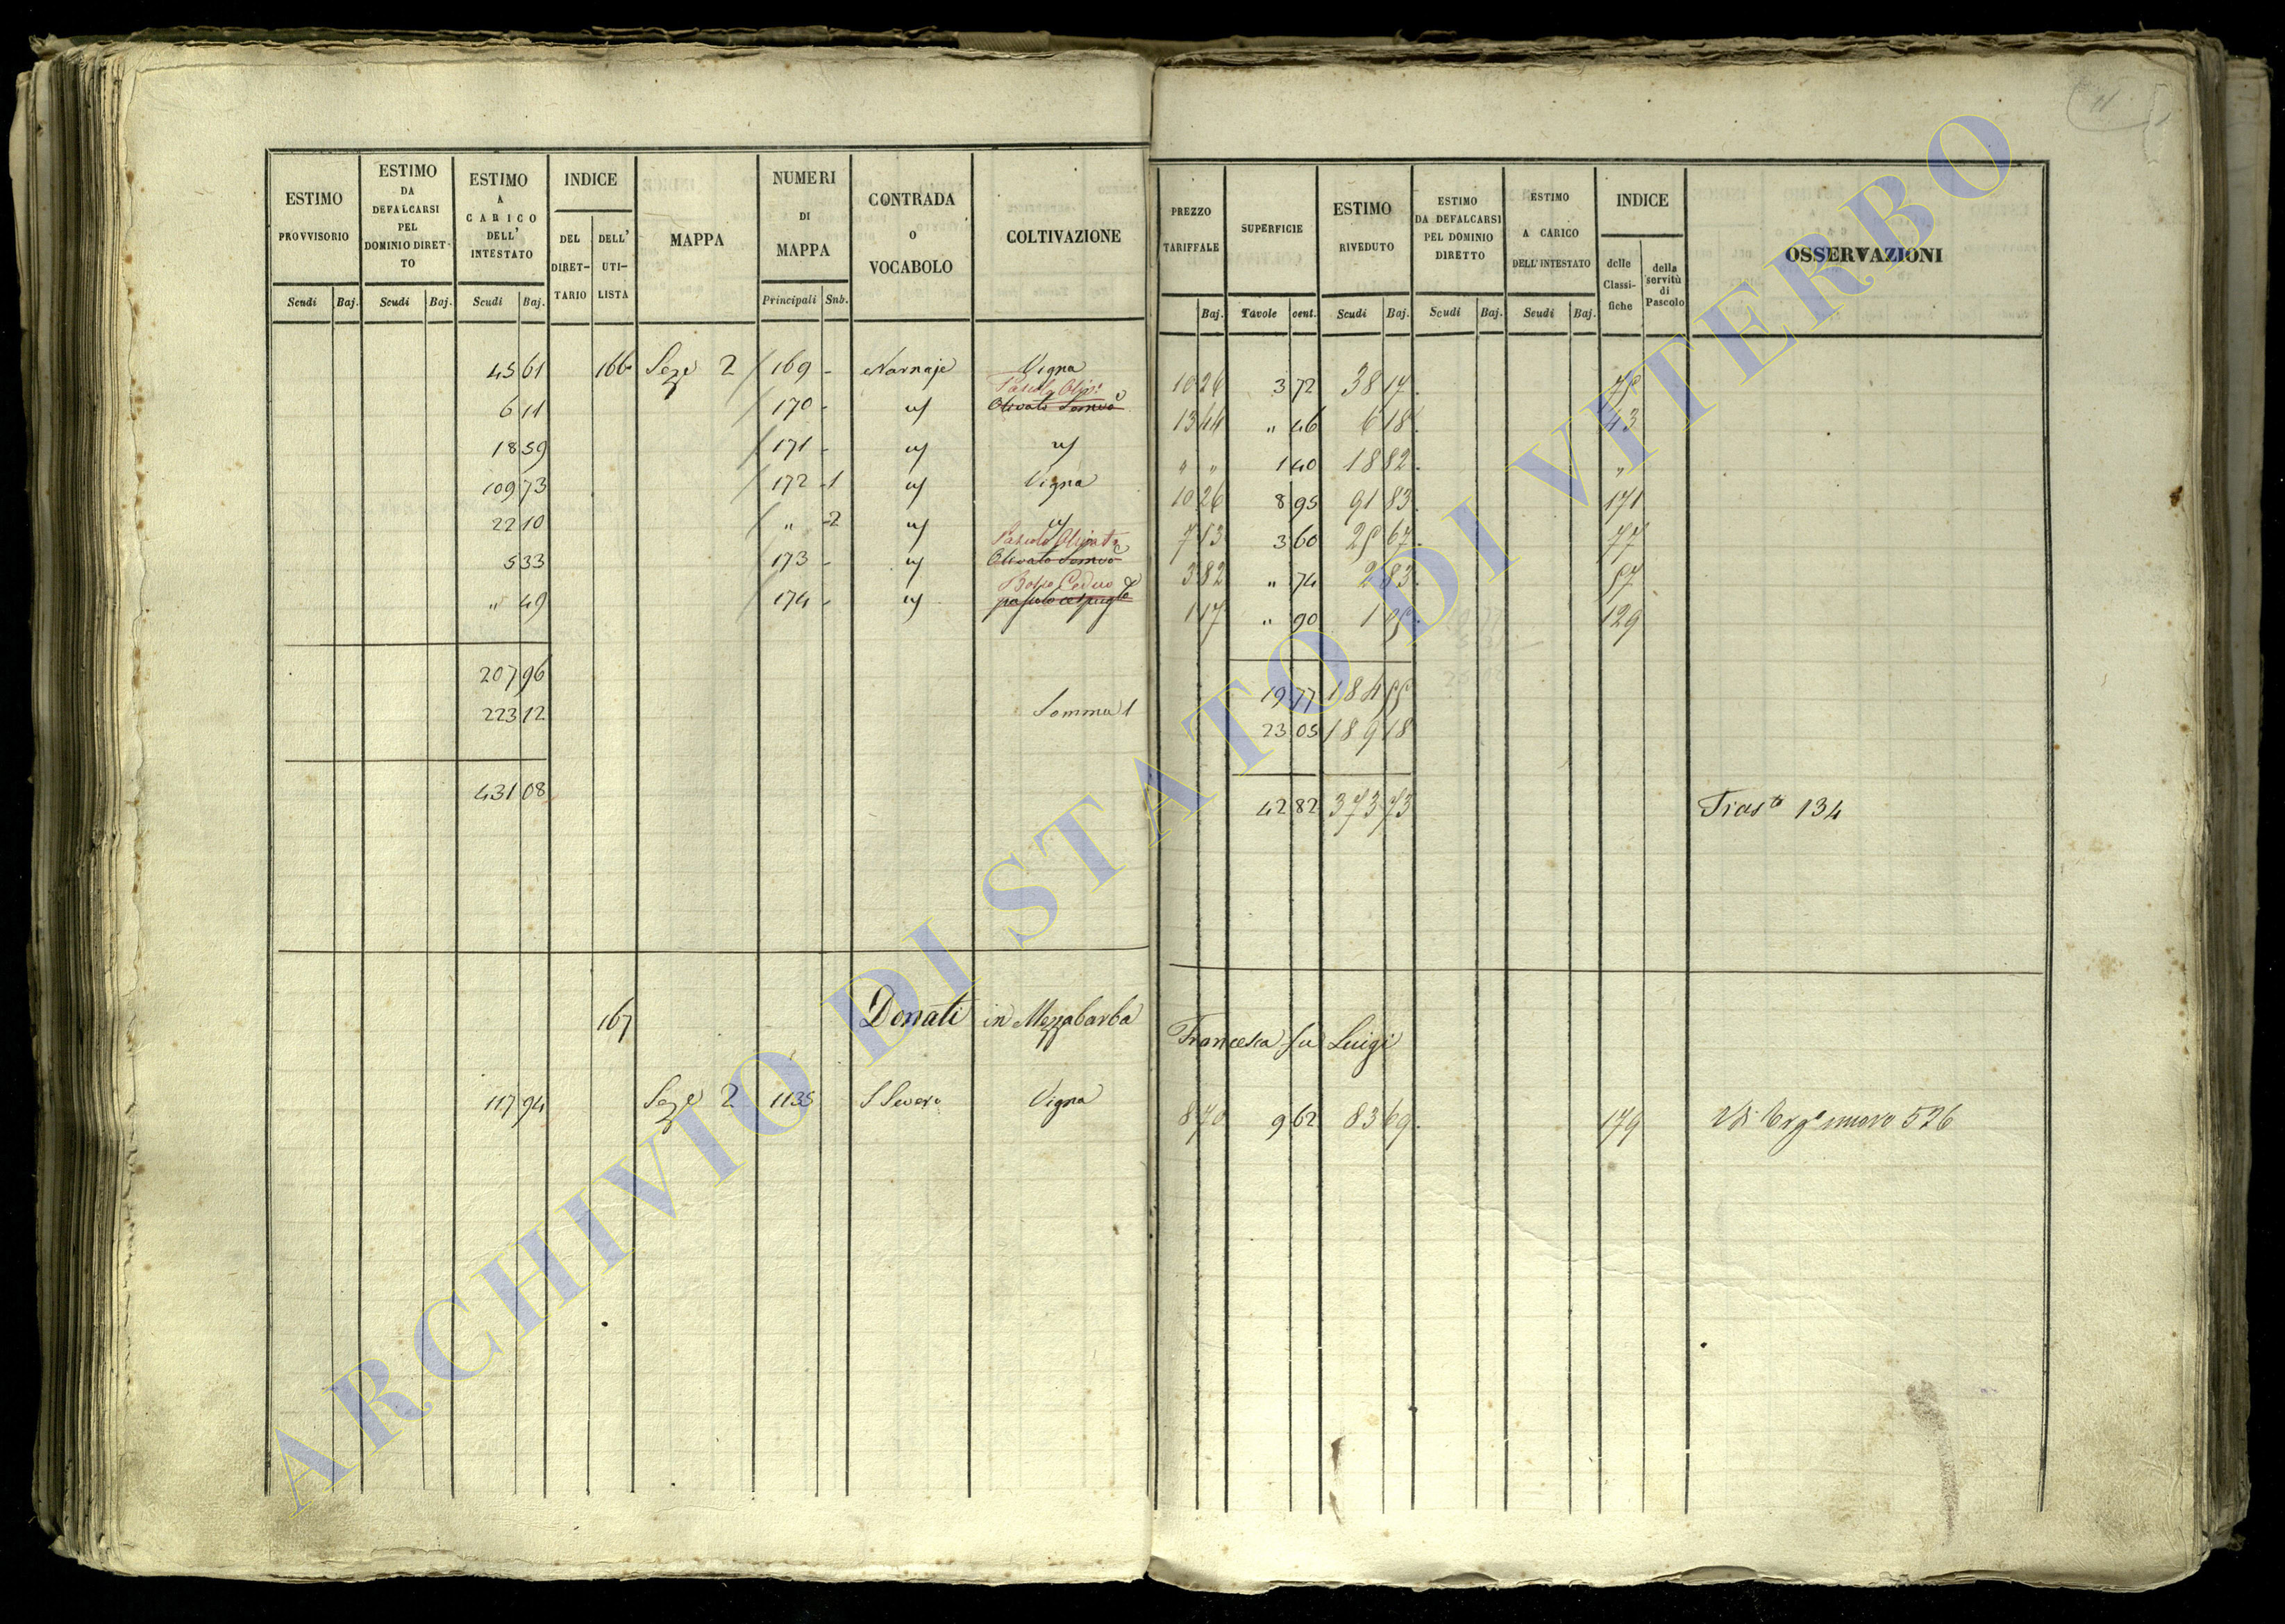 11
ESTIMO PROVVISORIO Scudi Baj.
ESTIMO DA DEFALCARSI PEL DOMINIO DIRET- TO Scudi Baj.
ESTIMO A CARICO DELL' INTESTATO Scudi Baj.
INDICE DEL DIRET- TARIO DELL' UTI- LISTA
MAPPA
NUMERI DI MAPPA Principali Sub.
CONTRADA O VOCABOLO
COLTIVAZIONE
PREZZO TARIFFALE Baj.
SUPERFICIE Tavole cent.
ESTIMO RIVEDUTO Scudi Baj.
ESTIMO DA DEFALCARSI PEL DOMINIO DIRETTO Scudi Baj.
ESTIMO A CARICO DELL'INTESTATO Scudi Baj.
INDICE delle Classi- fiche della servitù di Pascolo
OSSERVAZIONI
45 61 166 Seze 2 169 - Narnaje Vigna 10 26 3 72 38 17 75
6 11 170 - Pascolo Oliv. Olivato 13 44 " 46 6 18 43
18 59 171 - " " 1 40 18 82 "
109 73 172 -1 Vigna 10 26 8 95 91 83 171
22 10 " -2 7 13 3 60 25 67 77
5 33 173 - Pascolo Olivato Olivato 3 82 " 74 2 83 57
" 49 174 - Bosco Ceduo pascolo cespugto 1 17 " 90 1 05 129
207 96 19 77 184 55
223 12 Somma 1 23 05 189 18
431 08 42 82 373 73 Trasto 134
167 Donati in Mezzabarba Francesca fu Luigi
117 94 Seze 2 1135 S Severo Vigna 8 70 9 62 83 69 179 nuovo 526
ARCHIVIO DI STATO DI VITERBO